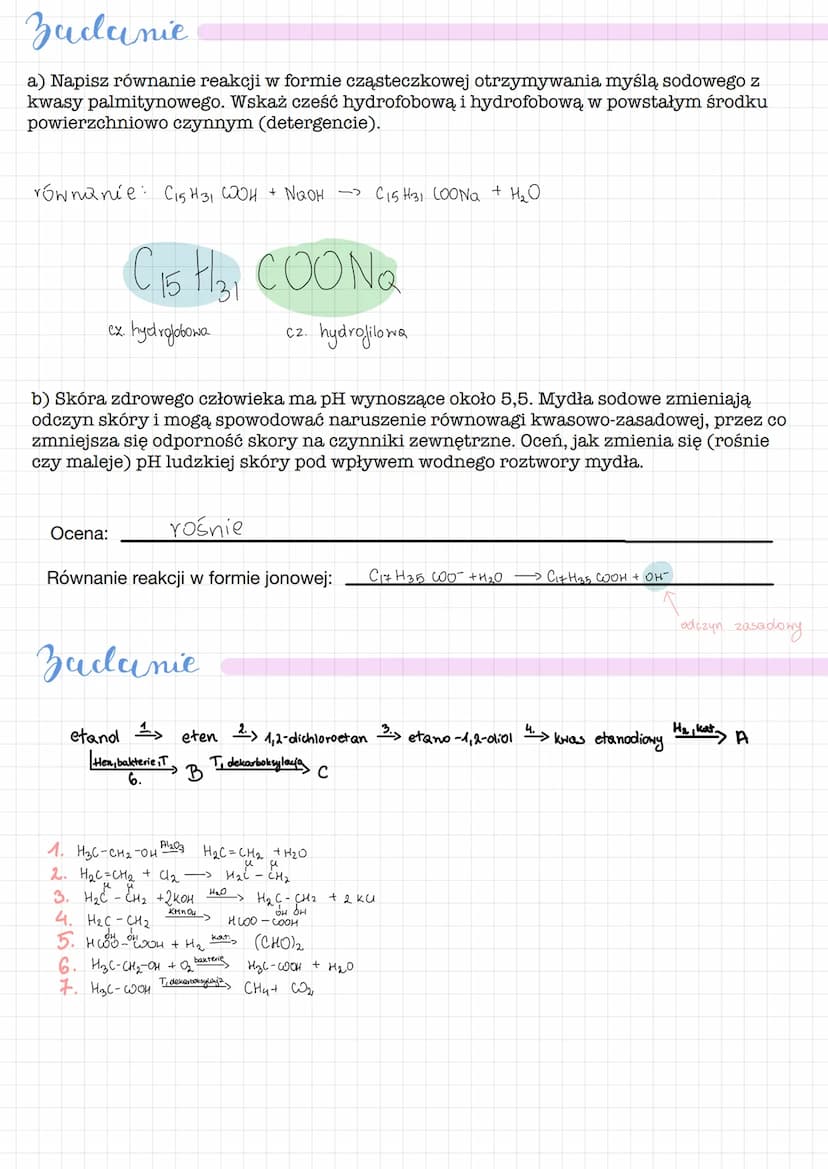 Zadanie
a) Napisz równanie reakcji w formie cząsteczkowej otrzymywania myślą sodowego z
kwasy palmitynowego. Wskaż cześć hydrofobową i hydrofobową w powstałym środku
powierzchniowo czynnym (detergencie).
równanie: C₁₅H₃₁ COOH + NaOH —> C₁₅H₃₁ COONa + H₂O
C₁₅H₃₁ COONa
cz. hydrofobowa cz. hydrofilowa
b) Skóra zdrowego człowieka ma pH wynoszące około 5,5. Mydła sodowe zmieniają
odczyn skóry i mogą spowodować naruszenie równowagi kwasowo-zasadowej, przez co
zmniejsza się odporność skory na czynniki zewnętrzne. Oceń, jak zmienia się (rośnie
czy maleje) pH ludzkiej skóry pod wpływem wodnego roztwory mydła.
Ocena: rośnie
Równanie reakcji w formie jonowej: C₁₇H₃₅ COO⁻ + H₂O —> C₁₇H₃₅ COOH + OH⁻
odczyn zasadowy
Zadanie
etanol 1.—> eten 2.—> 1,2-dichloroetan 3.—> etano-1,2-diol 4.—> kwas etanodiowy H₂, kat.—> A
bakterie, T
6. —> B T, dekarboksylacja—> C
1. H₃C-CH₂-OH Al₂O₃—> H₂C=CH₂ + H₂O
2. H₂C=CH₂ + Cl₂ —> H₂C - CH₂
Cl Cl
3. H₂C - CH₂ + 2KOH H₂O—> H₂C - CH₂ + 2 KCl
Cl Cl OH OH
4. H₂C - CH₂ KMnO₄—> HOOC - COOH
OH OH
5. HOOC-COOH + H₂ kat.—> (CHO)₂
6. H₃C-CH₂-OH + O₂ bakterie—> H₃C-COOH + H₂O
7. H₃C-COOH T, dekarboksylacja—> CH₄ + CO₂